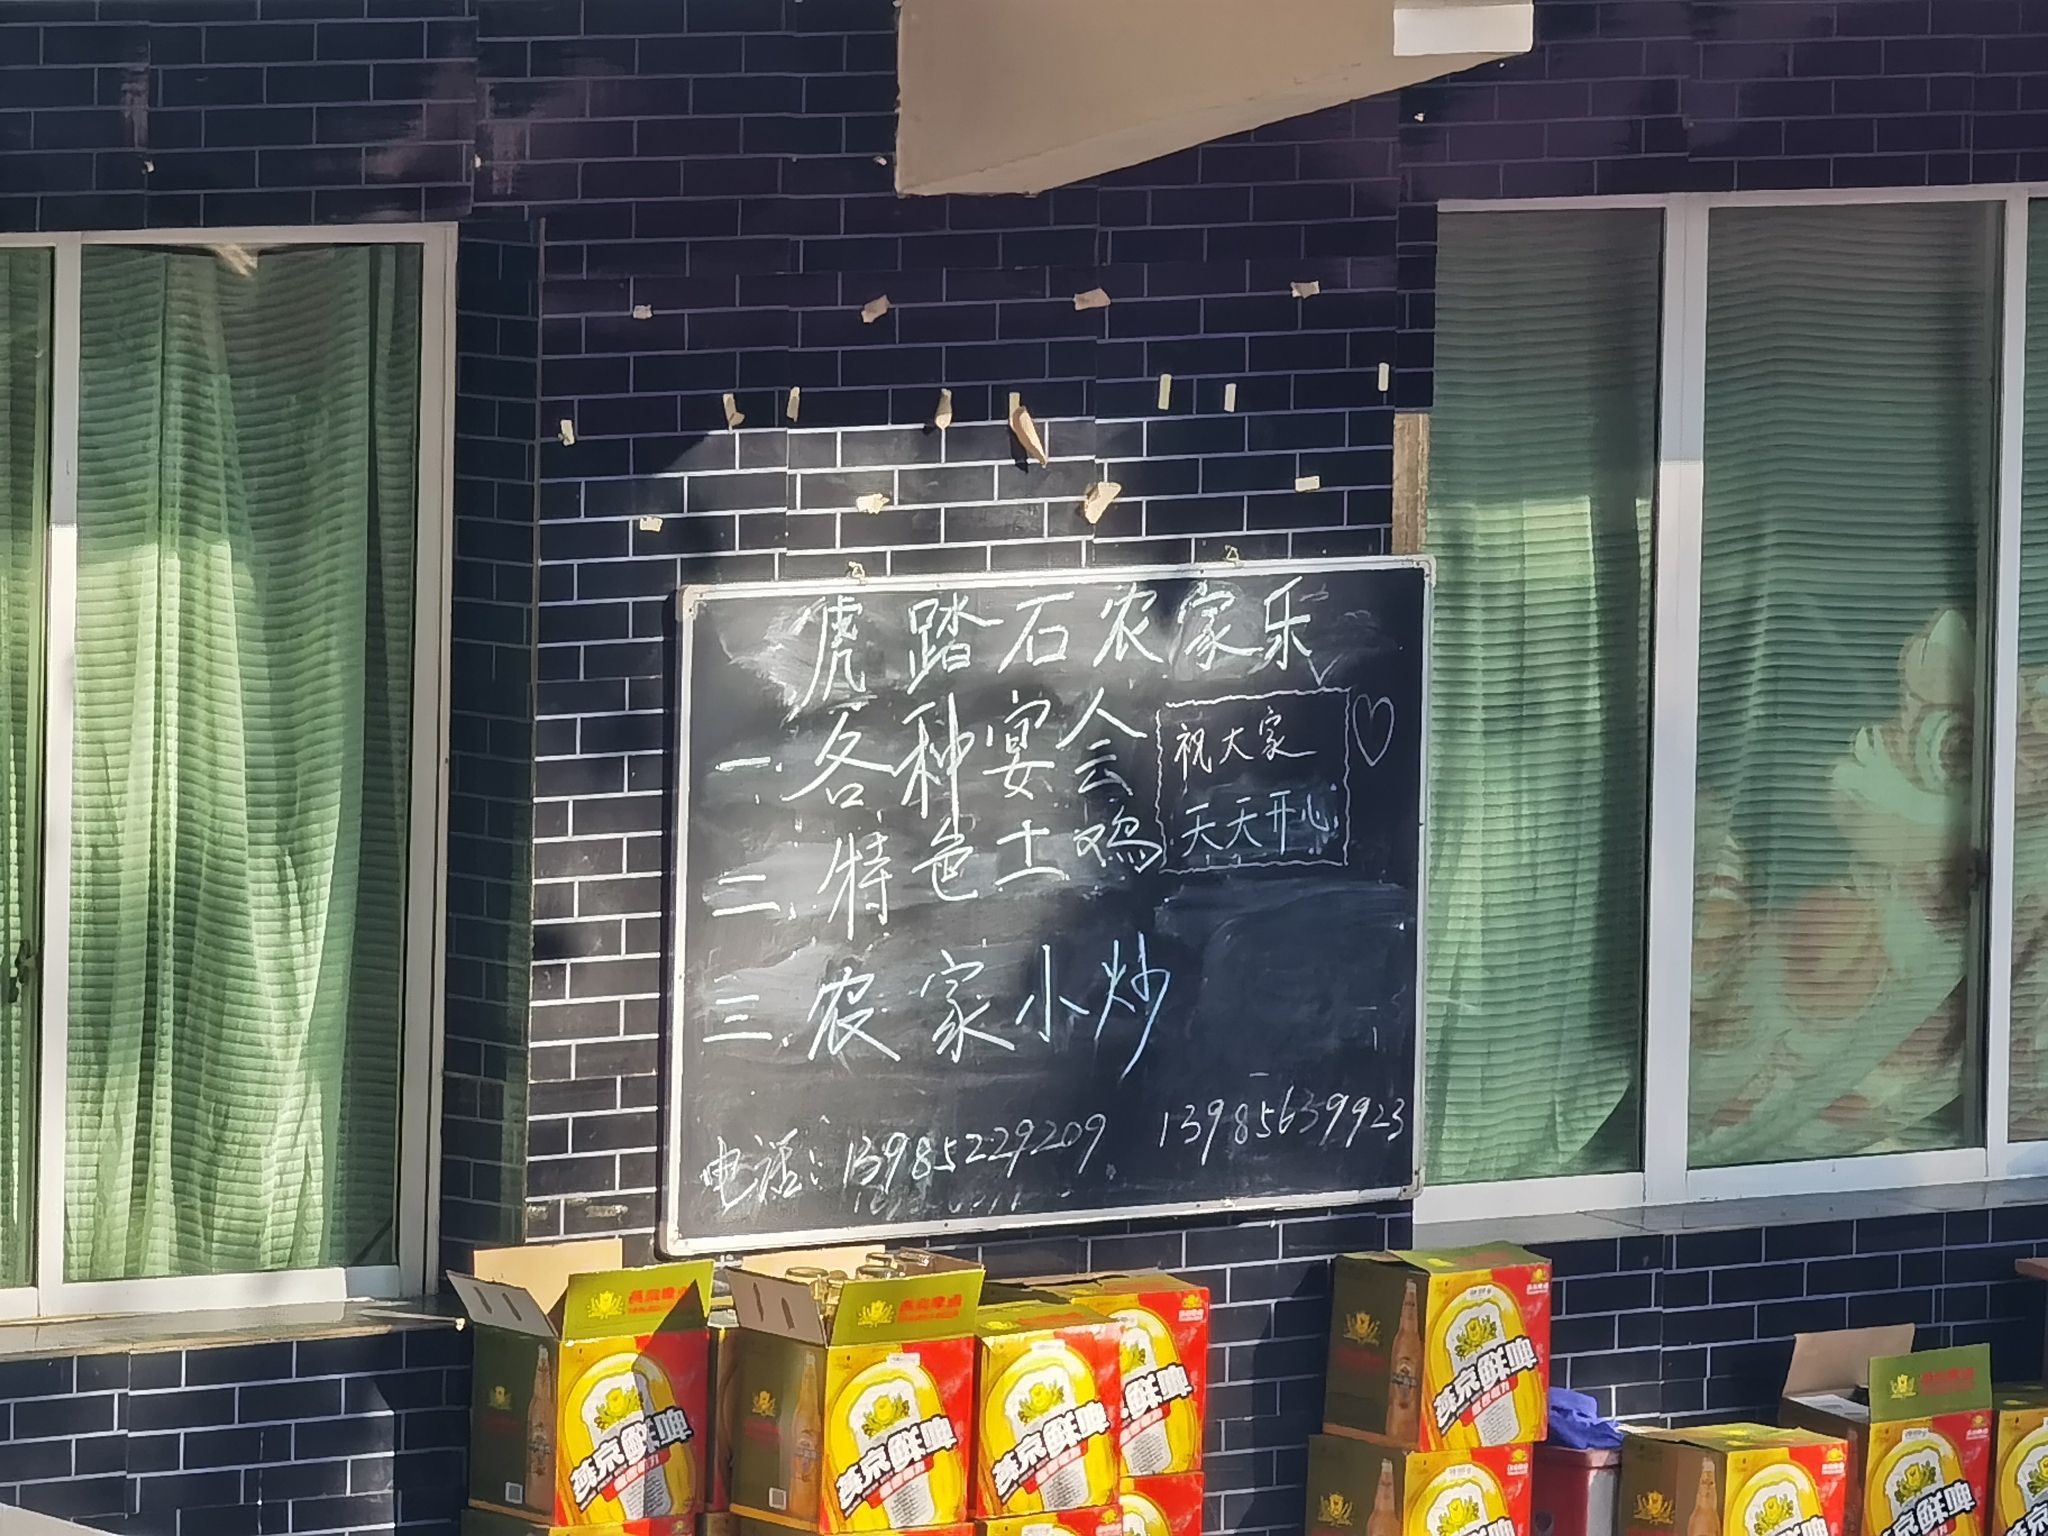 虎踏石农家乐
一.各种宴会
祝大家
天天开心
二.特色土鸡
三.农家小炒
电话：13985229209 13985639923
燕京鲜啤
燕京鲜啤
燕京鲜啤
燕京鲜啤
燕京鲜啤